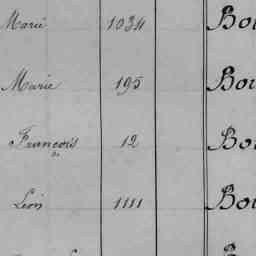 Marie 1034 Bou
Marie 195 Bou
François 12 Bou
Léon 1111 Bou